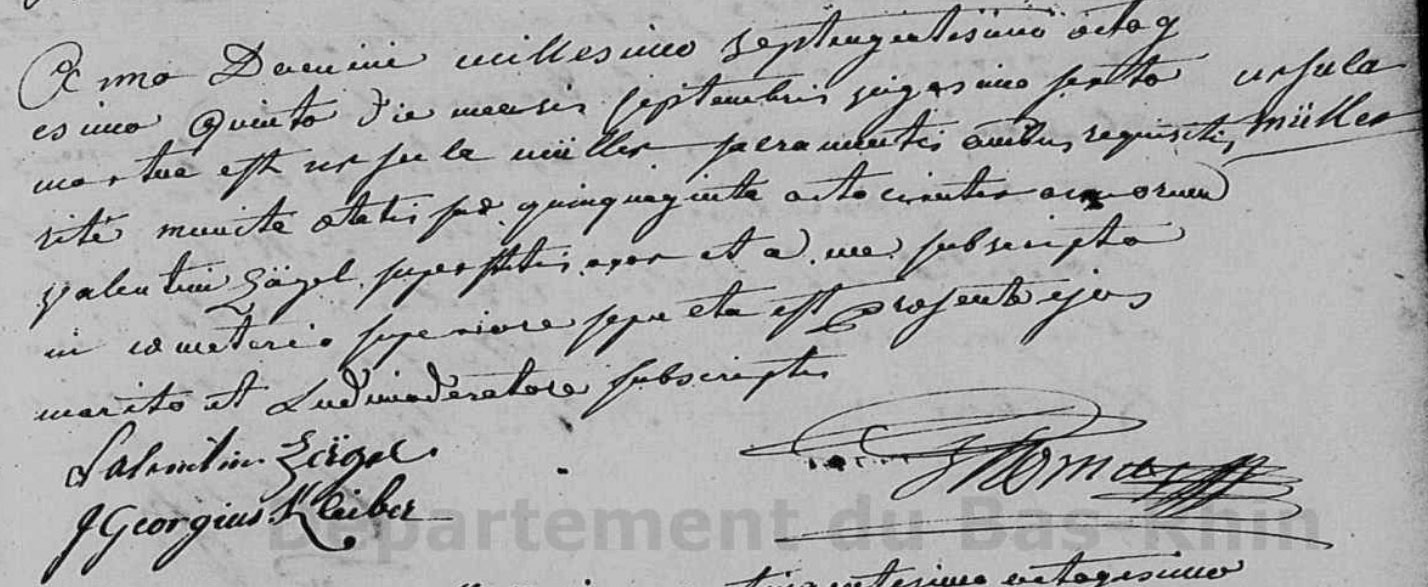 Anno Domini millesimo septengentesimo octog
esimo Quinto die mensis septembris vigesimo sexto
mortua est ursula müller sacramentis omnibus requisitis
ursula
müller
rité munita ætatis suæ quinquaginta octo circiter annorum
valentini Zägel superstitis uxor et a me subscripto
in cometerio superiore sepulta est præsente ejus
marito et Ludimoderatore subscriptis
Valentin
J Georgius Kleiber
Thomas
Département du Bas-Rhin
octogesimo